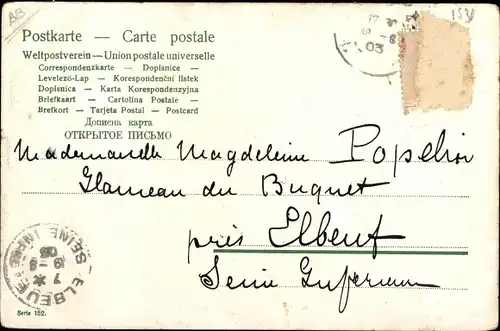 AB
1531
Postkarte — Carte postale
Weltpostverein — Union postale universelle
Correspondenzkarte — Dopisnice —
Levelező-Lap — Korespondenční lístek
Dopisnica — Karta Korespondenzyjna
Briefkaart — Cartolina Postale —
Brefkort — Tarjeta Postal — Postcard
Дописна карта
ОТКРЫТОЕ ПИСЬМО
03
Mademoiselle Magdeleine Popelin
Hameau du Buquet
près Elbeuf
Seine Inférieure
ELBEUF SEINE INFRE
7
9-8
03
Serie 152.